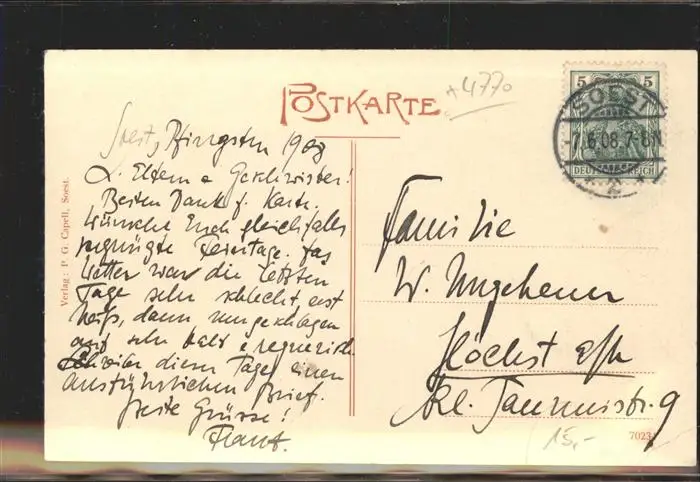 POSTKARTE
+4770
Soest, Pfingsten 1908
L. Eltern & Geschwister!
Besten Dank f. Karte.
Wünsche Euch gleichfalls
vergnügte Feiertage. Das
Wetter war die letzten
Tage sehr schlecht erst
heiß, dann umgeschlagen
auf sehr kalt & regnerisch.
Schreibe dieser Tage einen
ausführlichen Brief.
Beste Grüsse!
Verlag: P. G. Capell, Soest.
5 5
DEUTSCHES REICH
SOEST
7.6.08.7-8N
Familie
W. Ungeheuer
Höchst a/M
Kl. Taunusstr. 9
15,-
7023